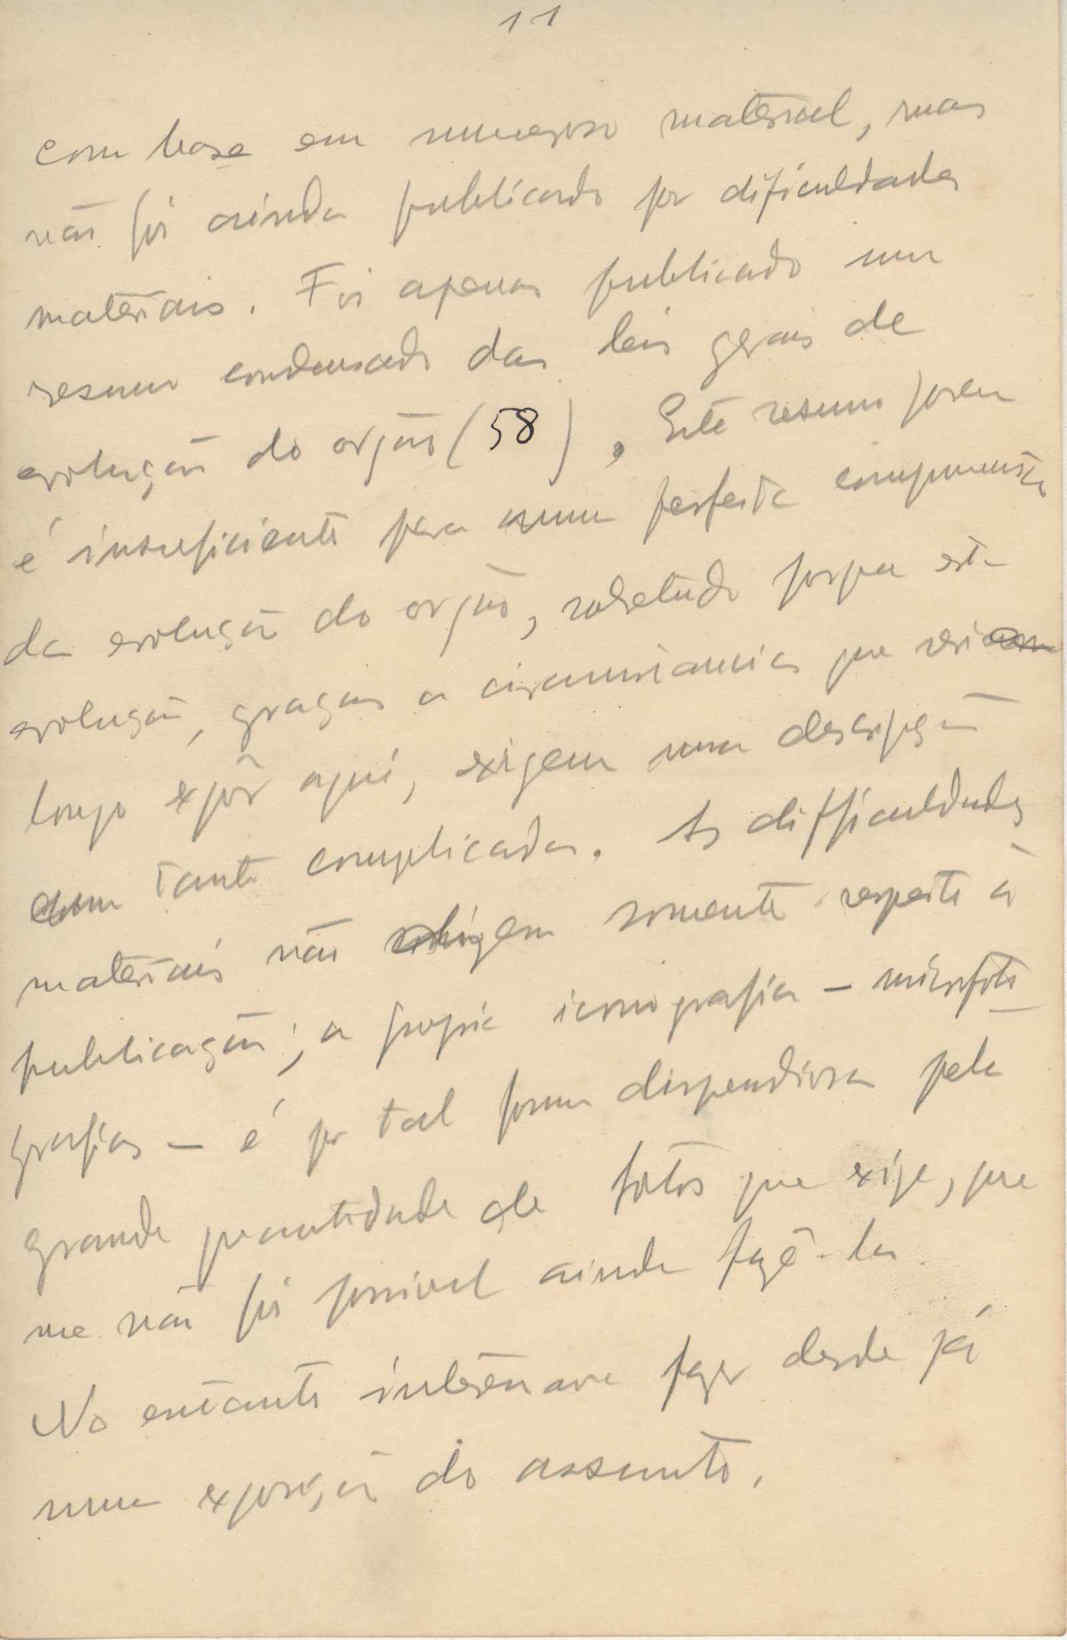 11
com base em numeroso material, mas
não foi ainda publicado por dificuldades
materiais. Foi apenas publicado um
resumo condensado das leis gerais de
evolução do orgão (58). Este resumo porem
é insuficiente para uma perfeita compreensão
da evolução do orgão, sobretudo porque esta
evolução, graças a circunstancias que seria
longo expôr aqui, exigem uma descripção
um tanto complicada. As difficuldades
materiais não dizem somente respeito á
publicação; a propria iconografia - microfoto
grafias - é por tal forma dispendiosa pela
grande quantidade de fotos que exige, que
me não foi possivel ainda fazê-la.
No entanto interessava fazer desde já
uma exposição do assunto.